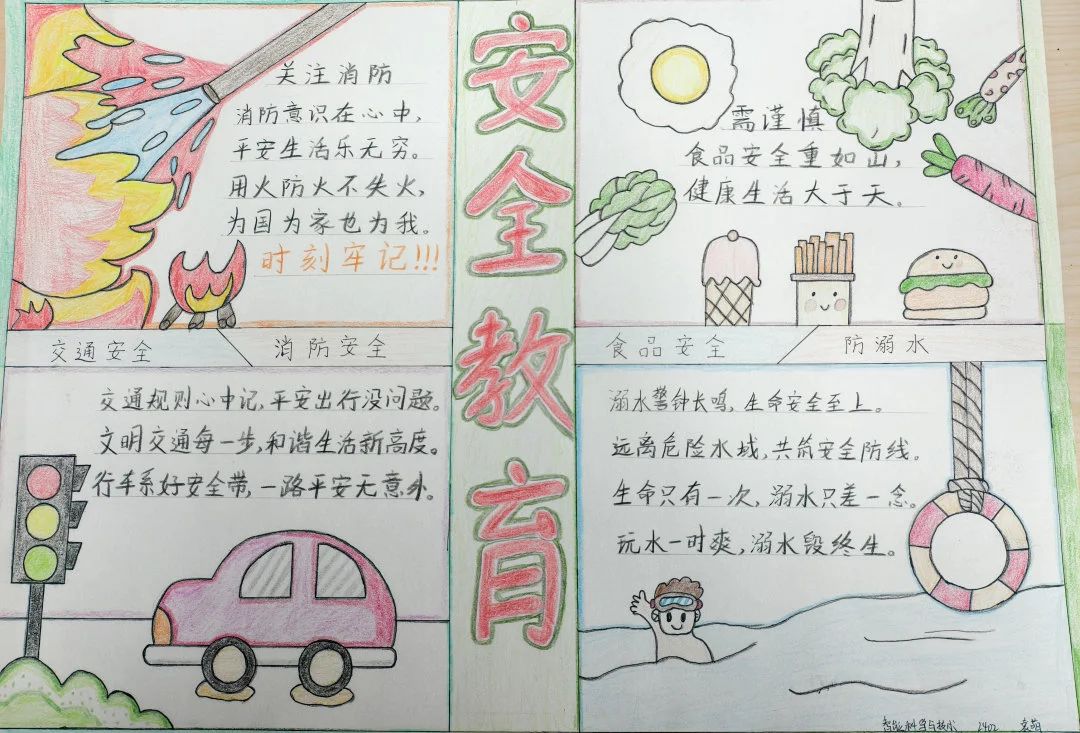 安全教育
关注消防
消防意识在心中，
平安生活乐无穷。
用火防火不失火，
为国为家也为我。
时刻牢记!!!
需谨慎
食品安全重如山，
健康生活大于天。
交通安全
消防安全
食品安全
防溺水
交通规则心中记，平安出行没问题。
文明交通每一步，和谐生活新高度。
行车系好安全带，一路平安无意外。
溺水警钟长鸣，生命安全至上。
远离危险水域，共筑安全防线。
生命只有一次，溺水只差一念。
玩水一时爽，溺水毁终生。
智能科学与技术 2402 袁萌